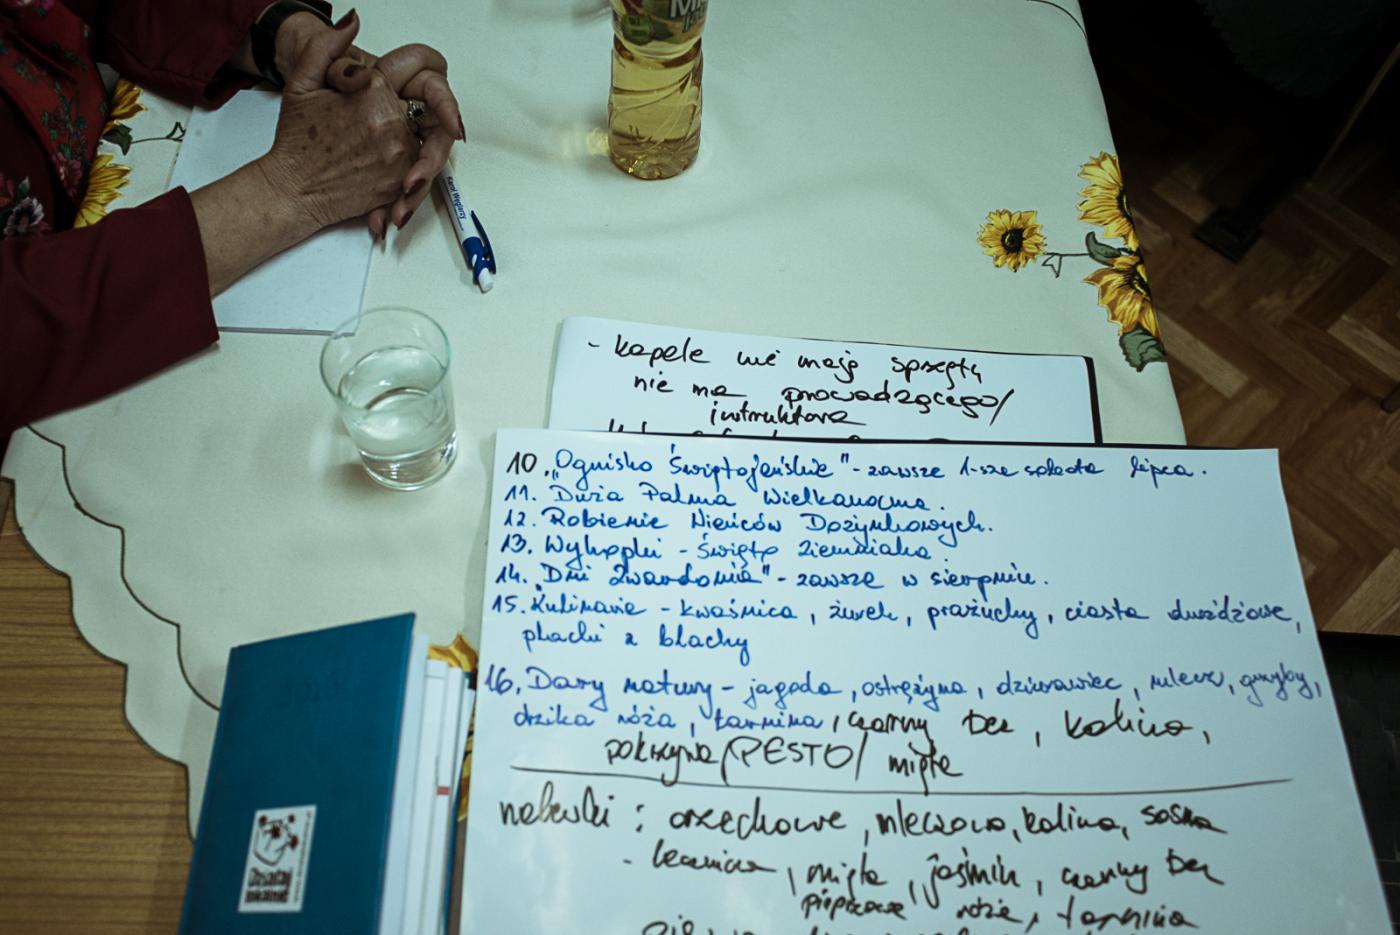 Karol Węglarzy
- kapele nie mają sprzętu
nie ma prowadzącego/
instruktora
10. „Ognisko Świętojańskie" - zawsze 1-sza sobota lipca.
11. Duża Palma Wielkanocna.
12. Robienie Wieńców Dożynkowych.
13. Wykopki - Święto Ziemniaka.
14. „Dni Zwardonia" - zawsze w sierpniu.
15. Kulinaria - kwaśnica, żurek, prażuchy, ciasta drożdżowe,
placki z blachy
16. Dary natury - jagoda, ostrężyna, dziurawiec, mlecz, grzyby,
dzika róża, tarnina, czarny bez, kalina,
pokrzywa /PESTO/ mięta
nalewki: orzechowe, mleczowa, kalina, sosna
- lecznicza, mięta, jaśmin, czarny bez
pieprzowe róża, tarnina